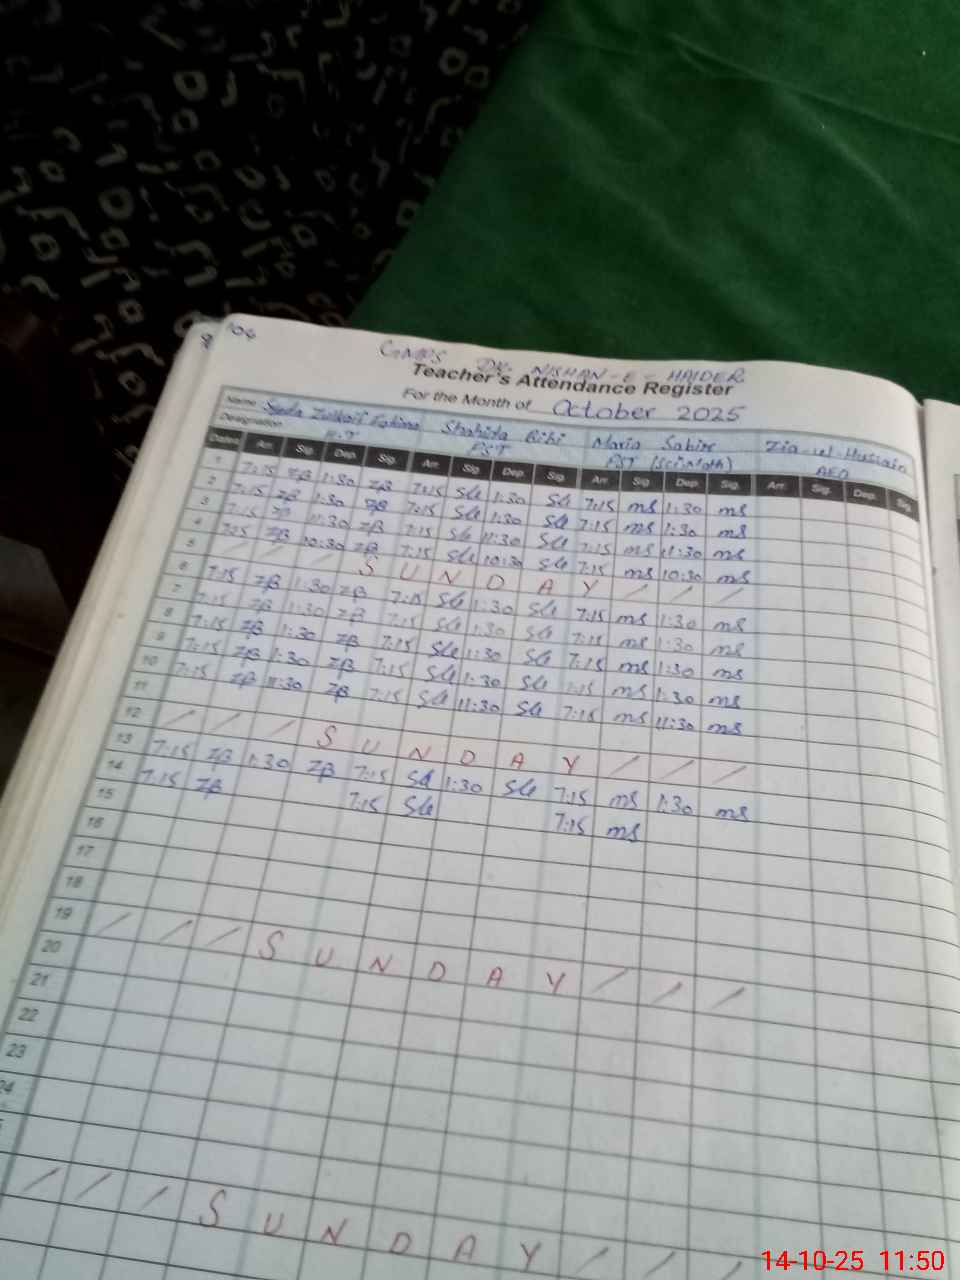 104
G.MPS DK. NISHAN-E-HAIDER
Teacher's Attendance Register
For the Month of October 2025
Name Syeda Fatima Shahida Bibi Maria Sabir Zia-ul-Hussain
Designation PST PST (sci/math) AEO
Dates Arr. Sig. Dep. Sig. Arr. Sig. Dep. Sig. Arr. Sig. Dep. Sig. Arr. Sig. Dep. Sig.
1 7:15 ZB 1:30 ZB 7:15 1:30 7:15 ms 1:30 ms
2 7:15 ZB 1:30 ZB 7:15 1:30 7:15 ms 1:30 ms
3 7:15 ZB 11:30 ZB 7:15 11:30 7:15 ms 11:30 ms
4 ZB 10:30 ZB 7:15 10:30 7:15 ms 10:30 ms
5 / / / S U N D A Y / / /
6 7:15 ZB 1:30 ZB 7:15 1:30 7:15 ms 1:30 ms
7 7:15 ZB 1:30 ZB 7:15 1:30 7:15 ms 1:30 ms
8 7:15 ZB 1:30 ZB 7:15 1:30 7:15 ms 1:30 ms
9 7:15 ZB 1:30 ZB 7:15 1:30 7:15 ms 1:30 ms
10 7:15 ZB 11:30 ZB 7:15 11:30 7:15 ms 11:30 ms
11
12 / / / S U N D A Y / / /
13 7:15 ZB 1:30 ZB 7:15 1:30 7:15 ms 1:30 ms
14 7:15 ZB 7:15 7:15 ms
15
16
17
18
19 / / / S U N D A Y / / /
20
21
22
23
24
/ / / S U N D A Y / / /
14-10-25 11:50